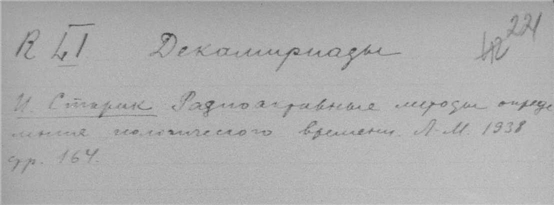 R L I Декамириады 221
И. Старик Радиоактивные методы опреде
ления геологического времени. Л.-М. 1938
стр. 164.